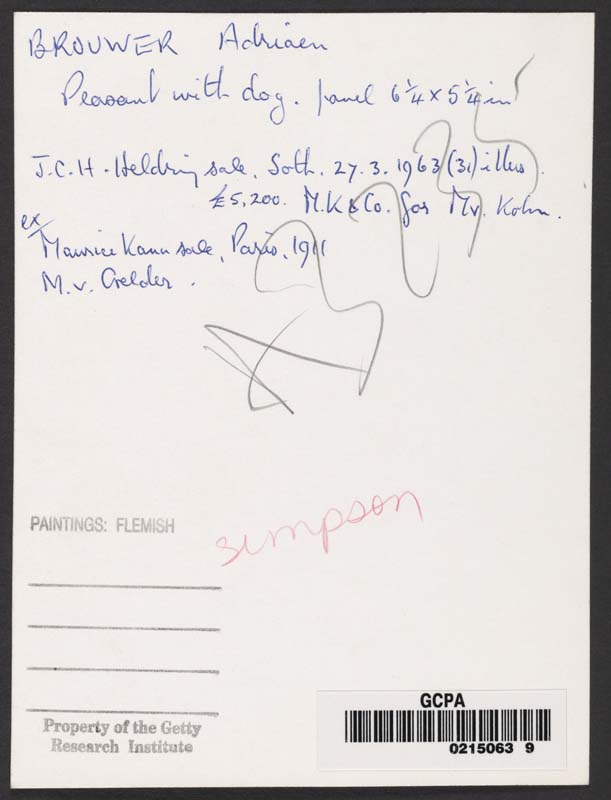 BROUWER Adriaen
Peasant with dog. panel 6¼ x 5¼ in
J.C.H. Heldring sale, Soth. 27.3.1963 (31) illus.
£5,200. M.K & Co. for Mr. Kohn.
ex
Maurice Kann sale, Paris, 1911
M. v. Gelder.
PAINTINGS: FLEMISH
simpson
Property of the Getty
Research Institute
GCPA
0215063 9